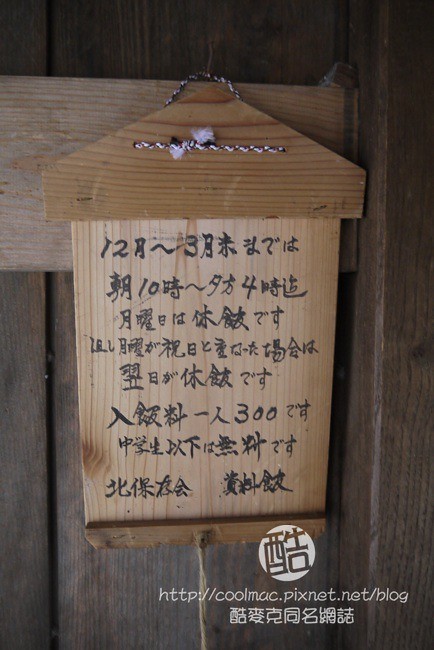 12月～3月末までは
朝10時～夕方4時迄
月曜日は休館です
但し月曜が祝日と重なった場合は
翌日が休館です
入館料一人300です
中学生以下は無料です
北保存会 資料館
酷
http://coolmac.pixnet.net/blog
酷麥克同名網誌